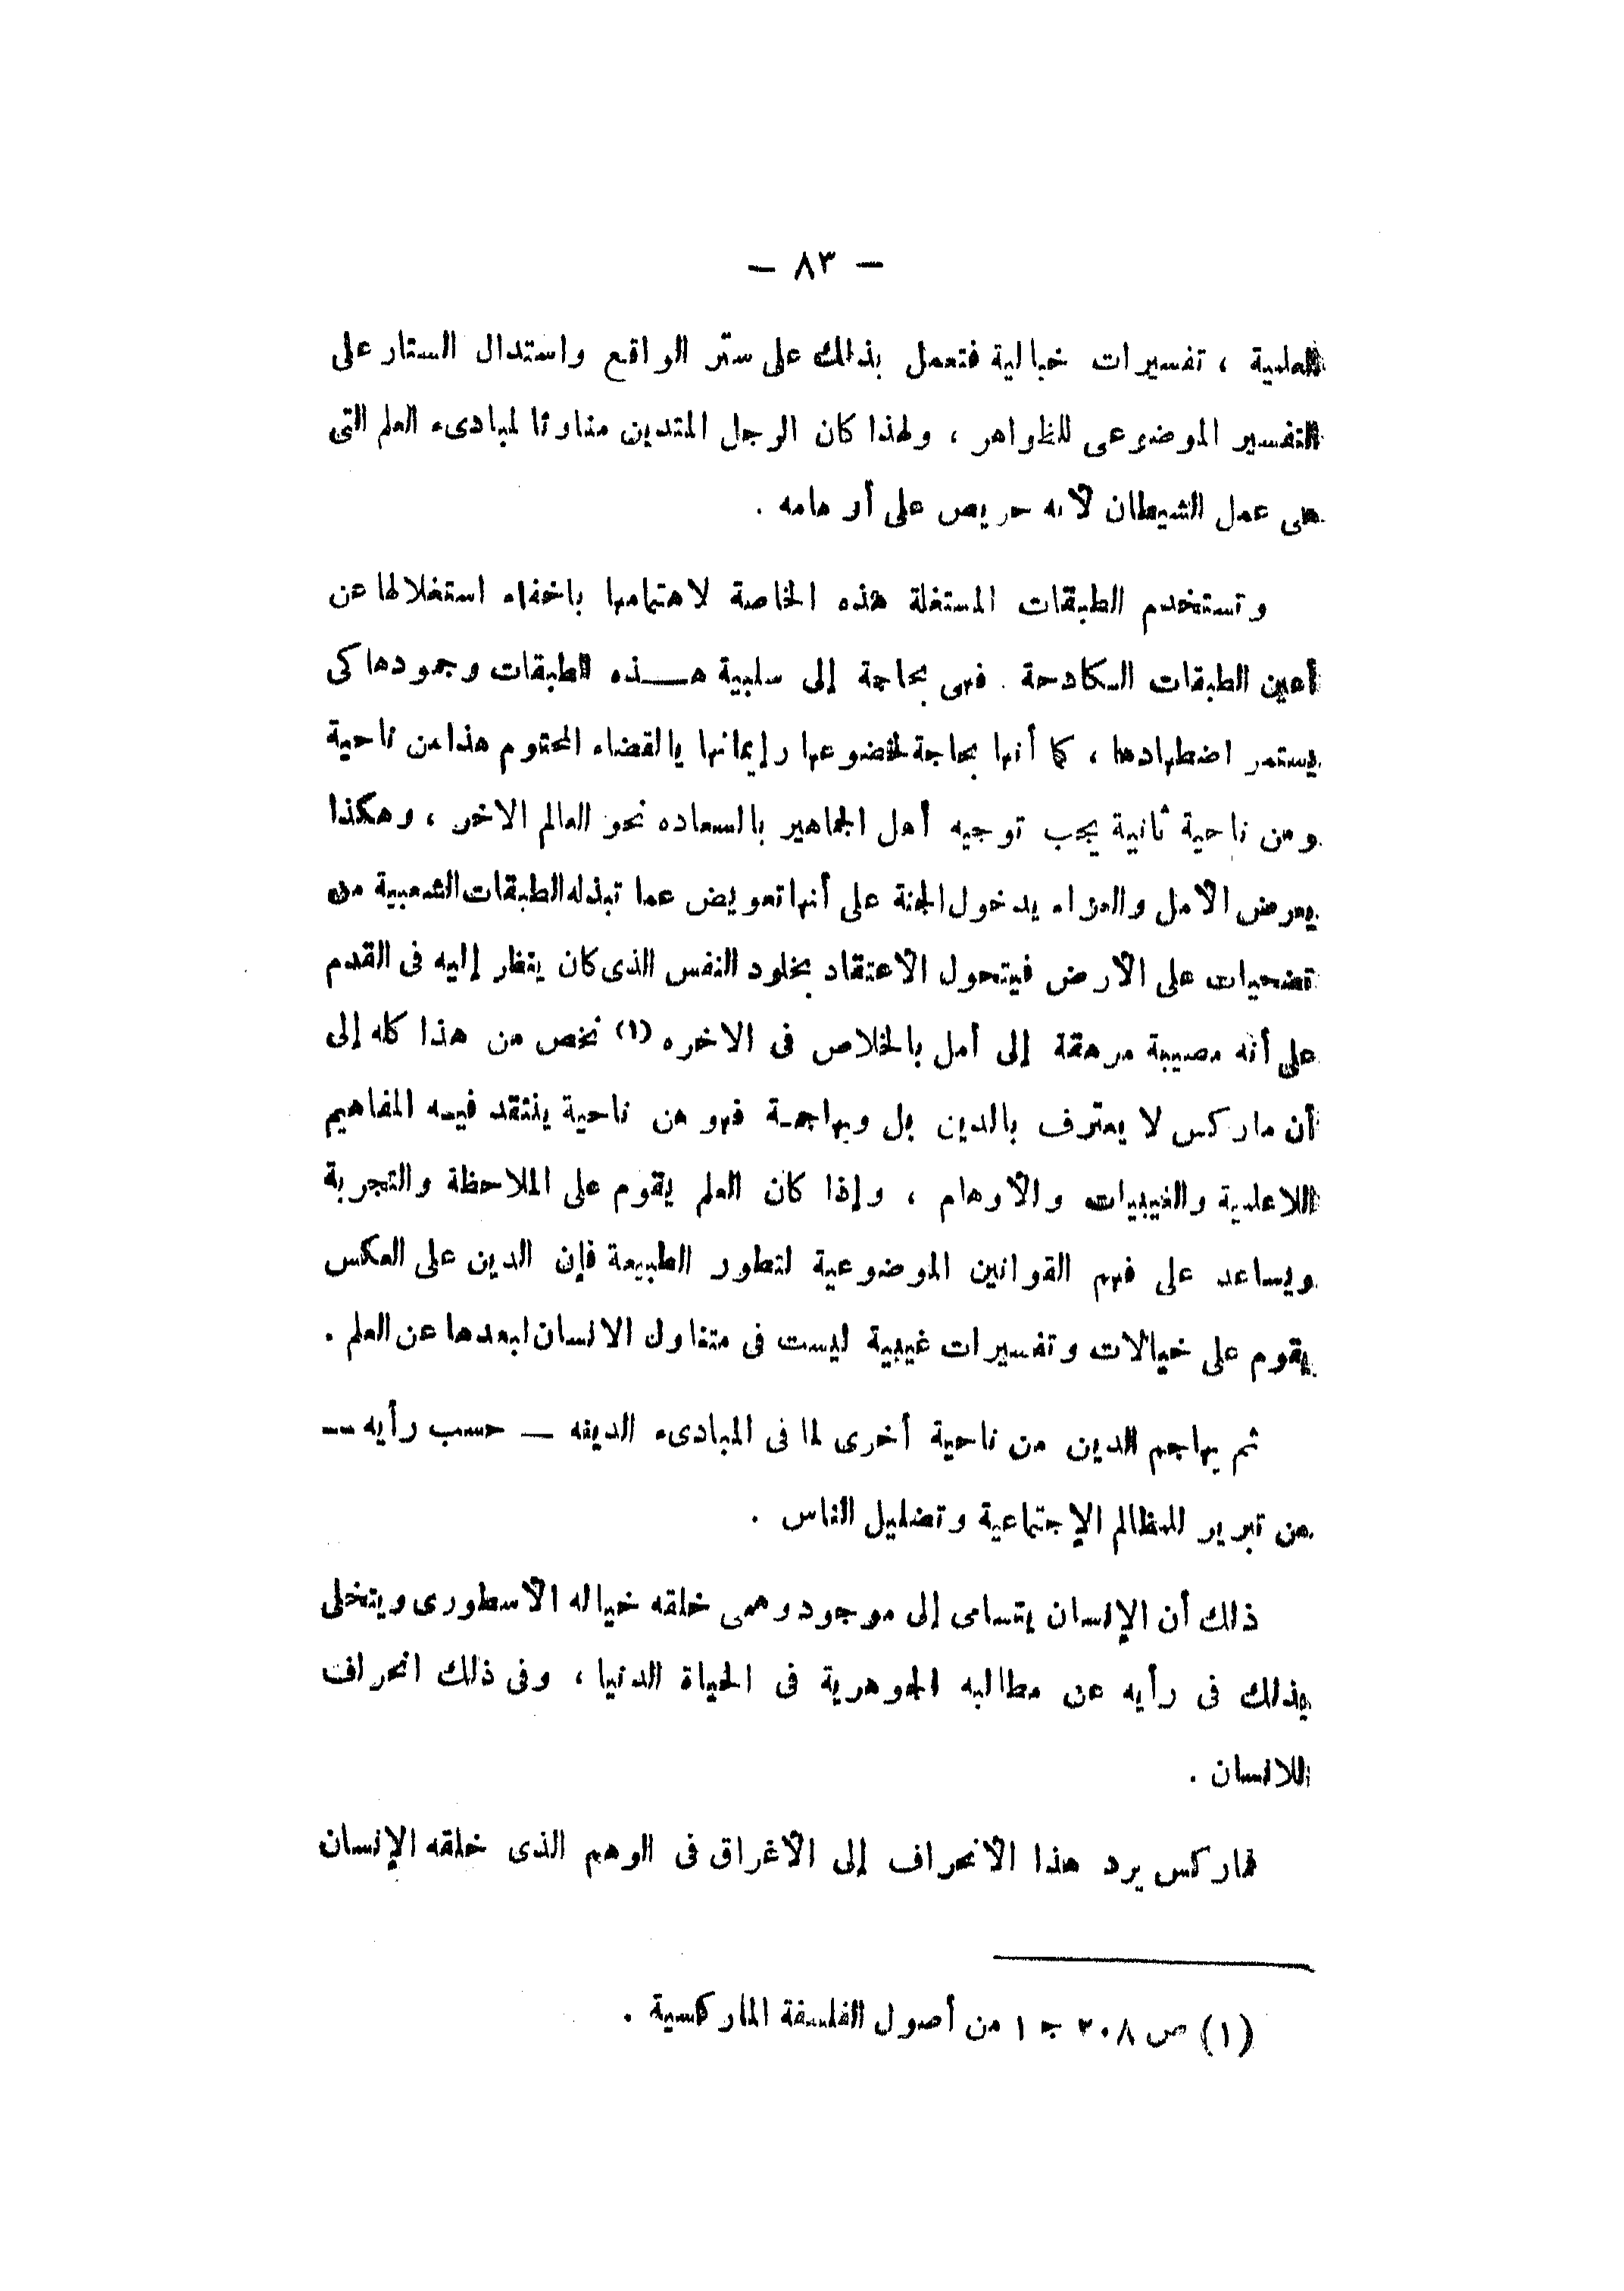 — ٨٣ —
العلمية ، تفسيرات خيالية فتعمل بذلك على ستر الواقع واستدال الستار على
التفسير الموضوعى للظواهر ، ولهذا كان الرجل المتدين مناوئا لمبادىء العلم التى
هى عمل الشيطان لأنه حريص على أوهامه .
وتستخدم الطبقات المستغلة هذه الخاصة لاهتمامها باخفاء استغلالها عن
أعين الطبقات الكادحة . فهى بحاجة إلى سلبية هـــذه الطبقات وجمودها كى
يستمر اضطهادها ، كما أنها بحاجة لخضوعها وإيمانها بالقضاء المحتوم هذا من ناحية
ومن ناحية ثانية يجب توجيه أمل الجماهير بالسعاده نحو العالم الاخر ، وهكذا
يعرض الأمل والعزاء بدخول الجنة على أنها تعويض عما تبذله الطبقات الشعبية من
تضحيات على الأرض فيتحول الأعتقاد بخلود النفس الذى كان ينظر إليه فى القدم
على أنه مصيبة مرهقة إلى أمل بالخلاص فى الاخره (١) نخص من هذا كله إلى
أن ماركس لا يعترف بالدين بل ويهاجمـة فهو من ناحية ينتقد فيـه المفاهيم
اللاعلمية والغيبيات والأوهام ، وإذا كان العلم يقوم على الملاحظة والتجربة
ويساعد على فهم القوانين الموضوعية لتطور الطبيعة فإن الدين على العكس
يقوم على خيالات وتفسيرات غيبية ليست فى متناول الانسان ابعدها عن العلم .
ثم يهاجم الدين من ناحية أخرى لما فى المبادىء الدينه — حسب رأيه —
من تبرير للمظالم الإجتماعية وتضليل الناس .
ذلك أن الإنسان يتسامى إلى موجود وهمى خلقه خياله الأسطورى ويتخلى
بذلك فى رأيه عن مطالبه الجوهرية فى الحياة الدنيا ، وفى ذلك انحراف
للانسان .
فماركس يرد هذا الأنحراف إلى الأغراق فى الوهم الذى خلقه الإنسان
(١) ص ٢٠٨ ج ١ من أصول الفلسفة الماركسية .